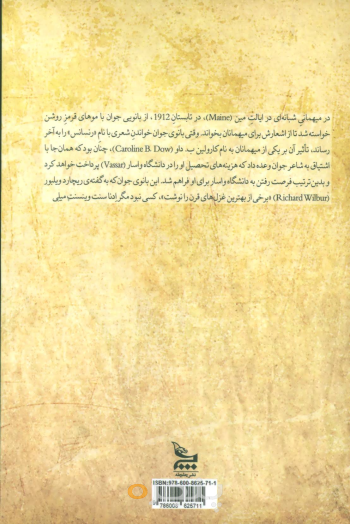 در میهمانیِ شبانه‌ای در ایالتِ مین (Maine)، در تابستان 1912، از بانویی جوان با موهای قرمزِ روشن
خواسته شد تا از اشعارش برای میهمانان بخواند. وقتی بانوی جوان خواندن شعری با نام «رنسانس» را به آخر
رساند، تأثیر آن بر یکی از میهمانان به نام کارولین ب. داو (Caroline B. Dow)، چنان بود که همان‌جا با
اشتیاق به شاعر جوان وعده داد که هزینه‌های تحصیل او را در دانشگاه واسار (Vassar) پرداخت خواهد کرد
و بدین ترتیب فرصت رفتن به دانشگاه واسار برای او فراهم شد. این بانوی جوان که به گفته‌ی ریچارد ویلبور
(Richard Wilbur) «برخی از بهترین غزل‌های قرن را نوشت»، کسی نبود مگر اِدنا سنت وینسنتِ میلی
ISBN: 978-600-8625-71-1
9786008625711